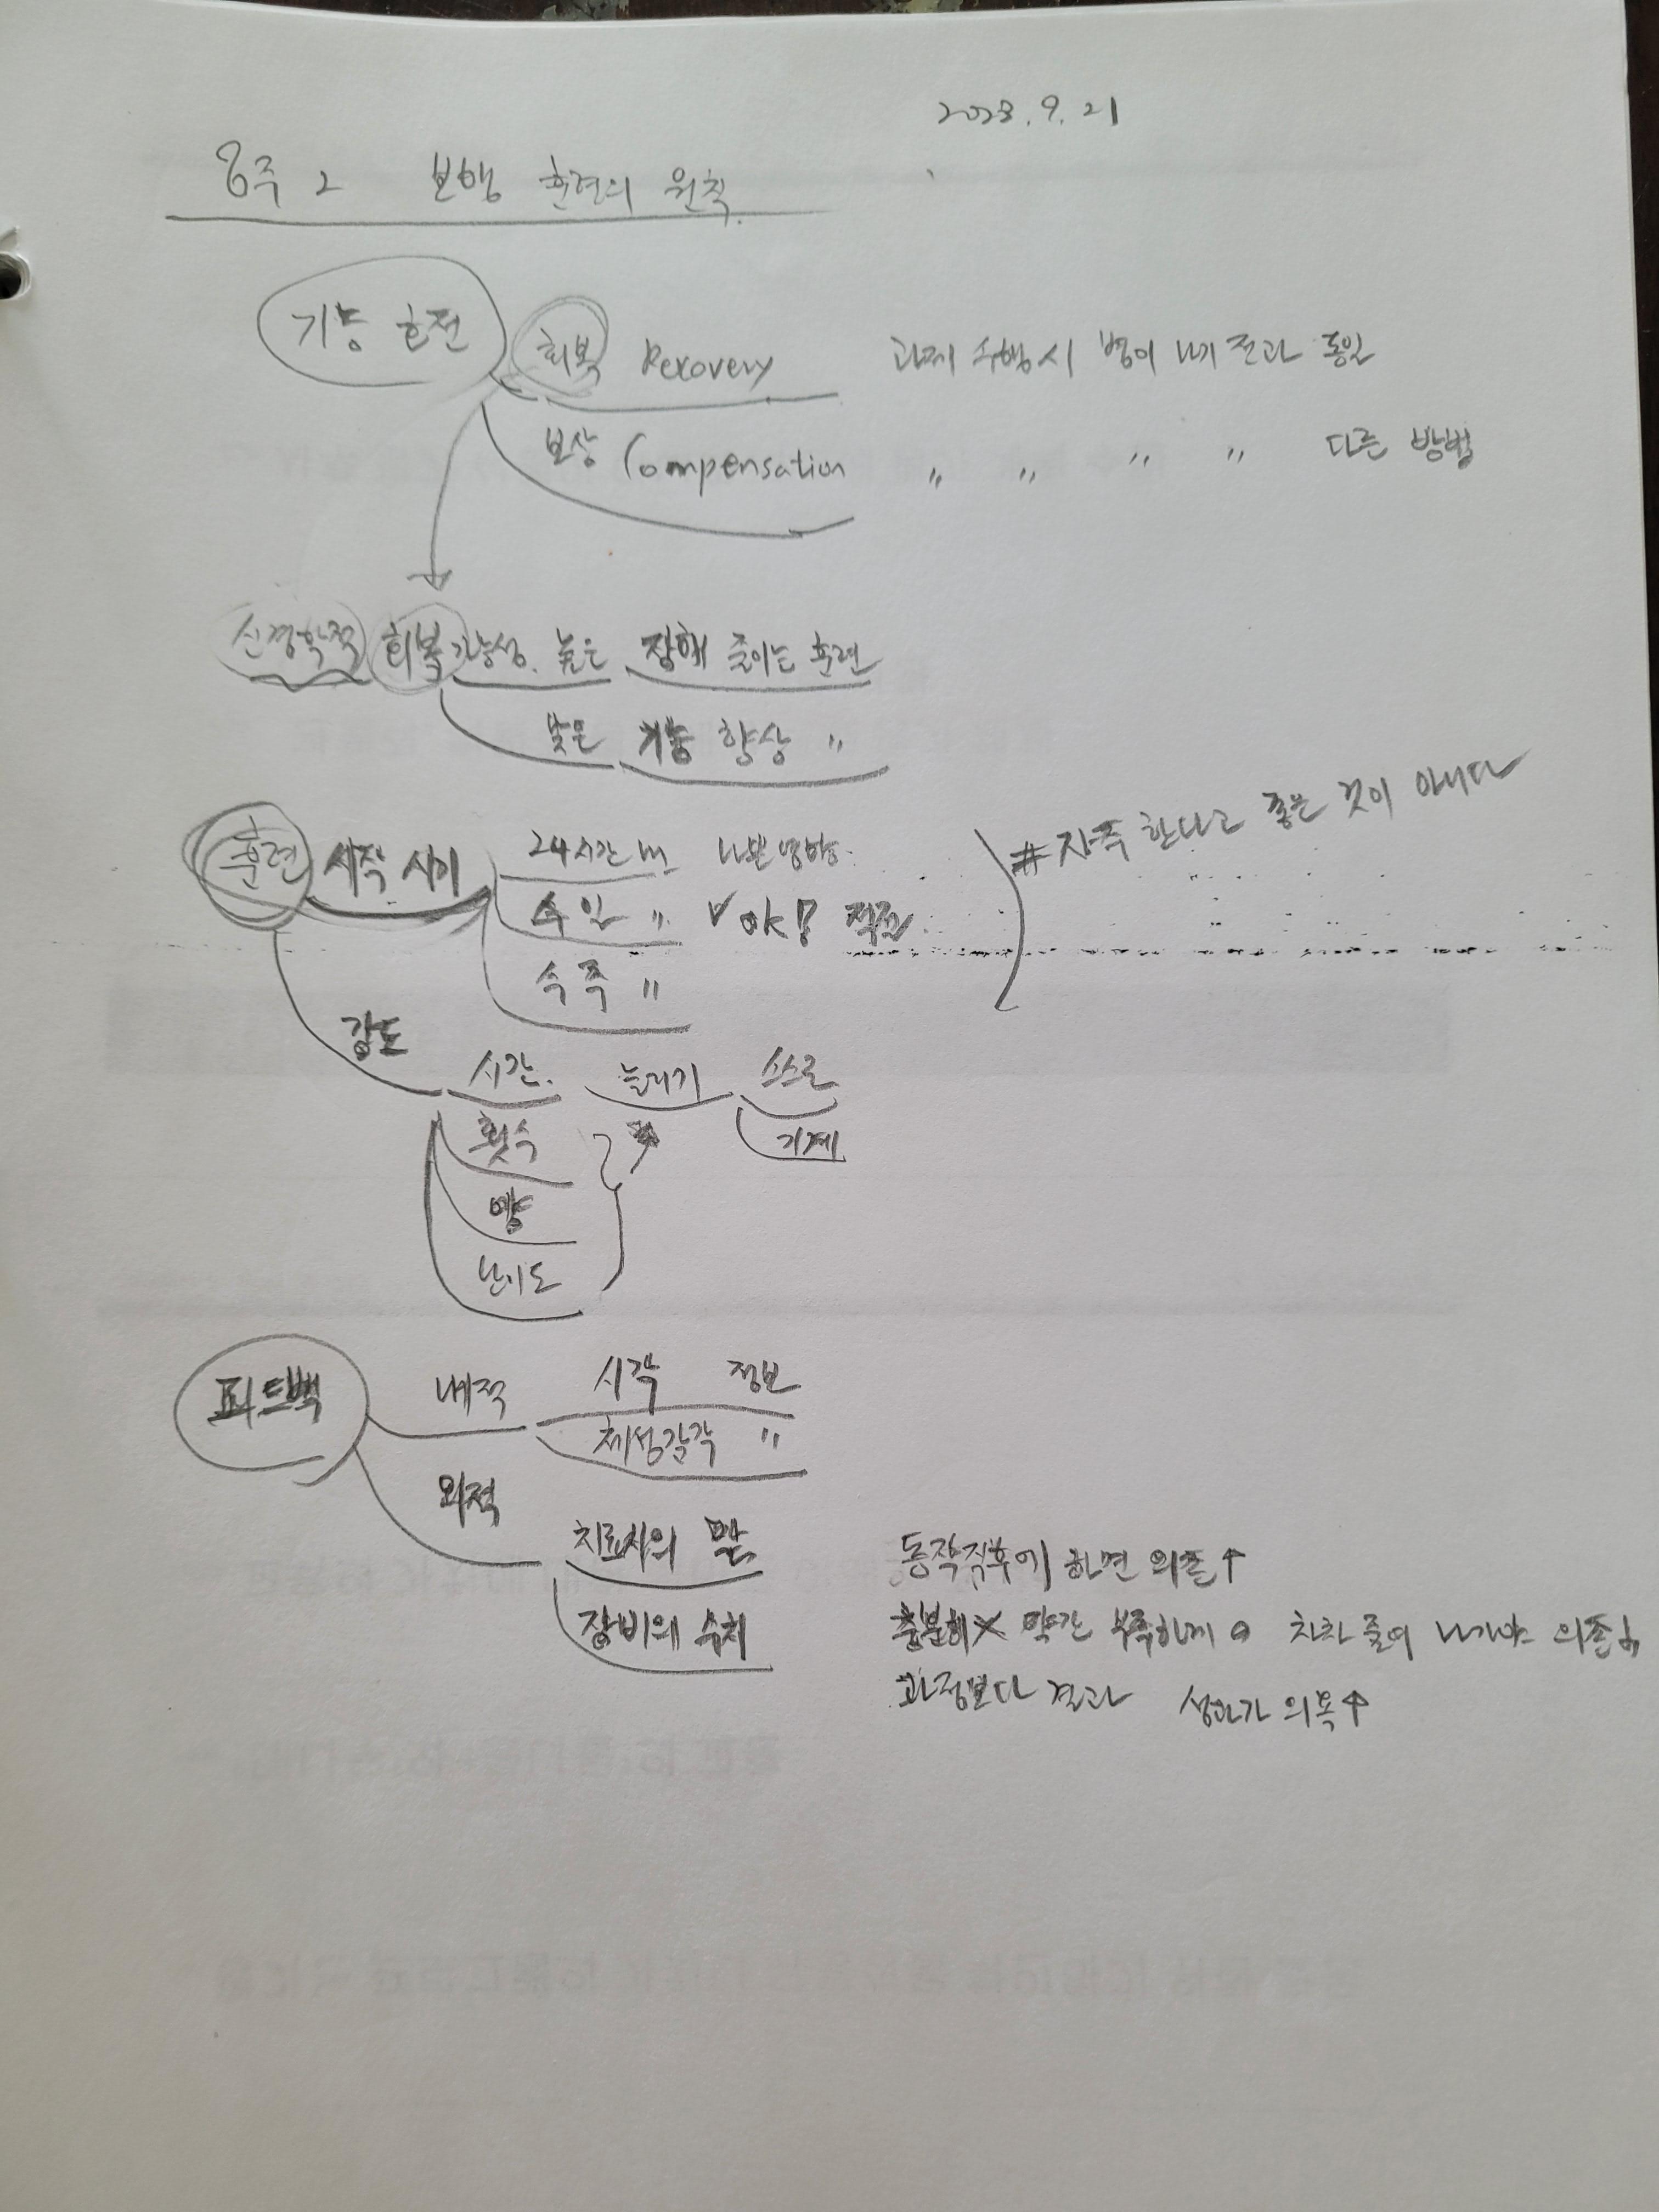 2023. 9. 21
8주 2 보행 훈련의 원칙
기능 호전
회복 Recovery 과제 수행시 병이 나기 전과 동일
보상 Compensation 〃 〃 〃 〃 다른 방법
신경학적 회복 가능성. 높은 장해 줄이는 훈련
낮은 기능 향상 〃
훈련 시작 시기 24시간 내 나쁜 영향.
# 자극 한다고 좋은 것이 아니다
수일 〃 V OK!
수주 〃
강도
시간. 늘리기 스스로
횟수 기계
양
난이도
피드백
내적 시각 정보
체성감각 〃
외적
치료사의 말 동작직후에 하면 의존↑
장비의 수치 충분히 X 약간 부족하게 o 차차 줄여 나가야 의존↓
과정보다 결과 성과가 의욕↑